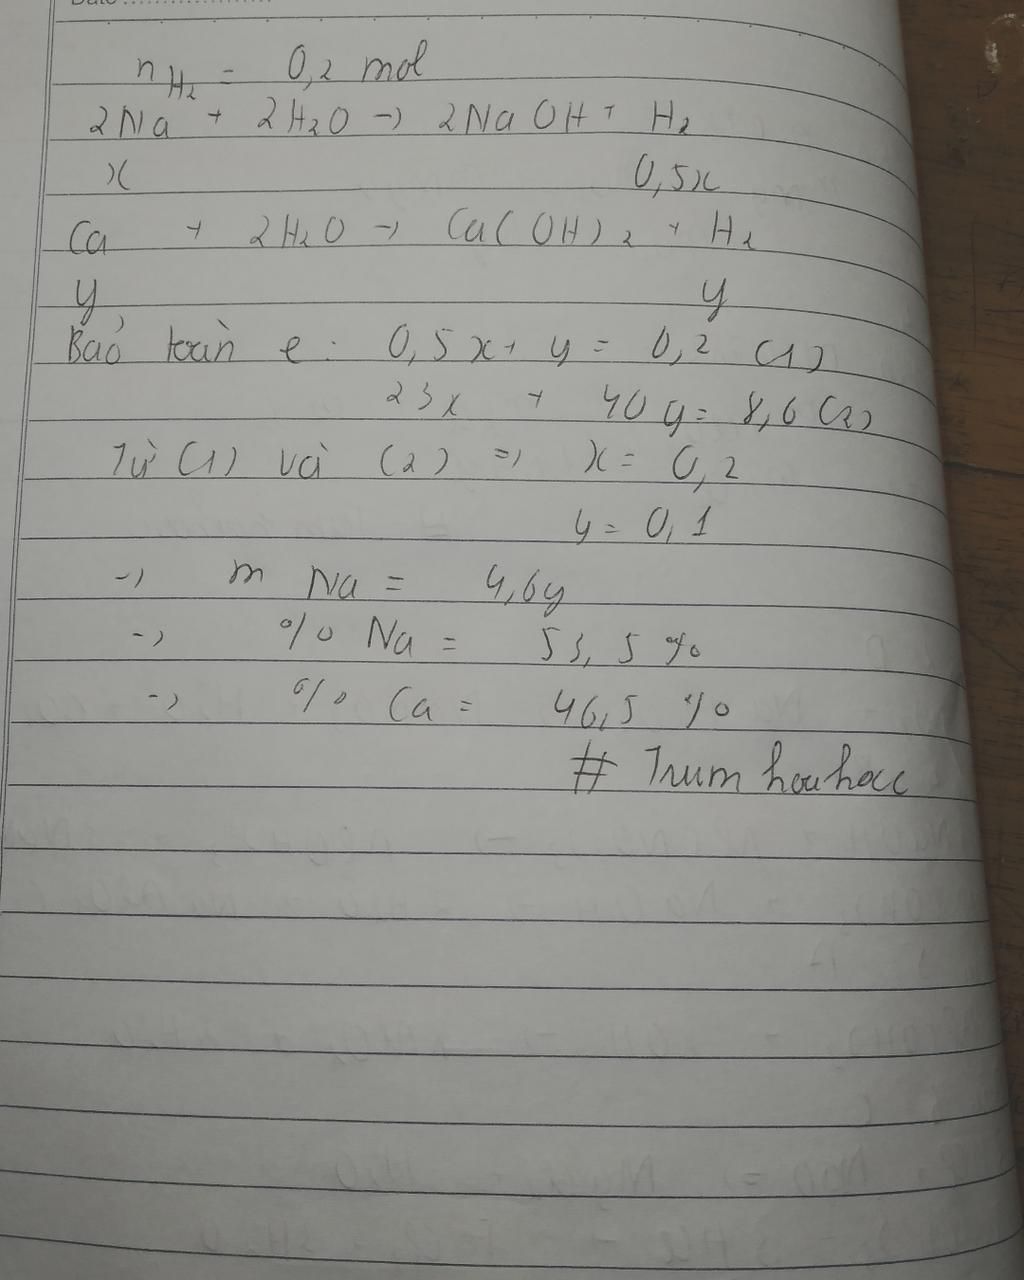 Date
n H₂ = 0,2 mol
2Na + 2H₂O → 2NaOH + H₂
x 0,5x
Ca + 2H₂O → Ca(OH)₂ + H₂
y y
Bảo toàn e : 0,5x + y = 0,2 (1)
23x + 40y = 8,6 (2)
Từ (1) và (2) => x = 0,2
y = 0,1
→ m Na = 4,6g
→ % Na = 53,5 %
→ % Ca = 46,5 %
# Trum hoa hoc